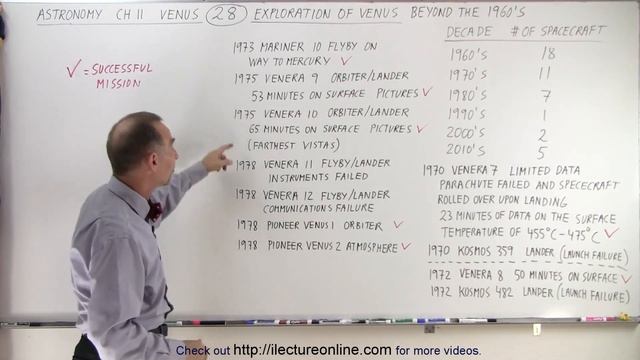 ASTRONOMY CH 11 VENUS 28 EXPLORATION OF VENUS BEYOND THE 1960'S
✓ = SUCCESSFUL
MISSION
1973 MARINER 10 FLYBY ON
WAY TO MERCURY ✓
1975 VENERA 9 ORBITER/LANDER
53 MINUTES ON SURFACE PICTURES ✓
1975 VENERA 10 ORBITER/LANDER
65 MINUTES ON SURFACE PICTURES ✓
(FARTHEST VISTAS)
1978 VENERA 11 FLYBY/LANDER
INSTRUMENTS FAILED
1978 VENERA 12 FLYBY/LANDER
COMMUNICATIONS FAILURE
1978 PIONEER VENUS 1 ORBITER ✓
1978 PIONEER VENUS 2 ATMOSPHERE ✓
DECADE # OF SPACECRAFT
1960'S 18
1970'S 11
1980'S 7
1990'S 1
2000'S 2
2010'S 5
1970 VENERA 7 LIMITED DATA
PARACHUTE FAILED AND SPECECRAFT
ROLLED OVER UPON LANDING
23 MINUTES OF DATA ON THE SURFACE
TEMPERATURE OF 455°C - 475°C ✓
1970 KOSMOS 359 LANDER (LAUNCH FAILURE)
1972 VENERA 8 50 MINUTES ON SURFACE ✓
1972 KOSMOS 482 LANDER (LAUNCH FAILURE)
Check out http://ilectureonline.com for more videos.